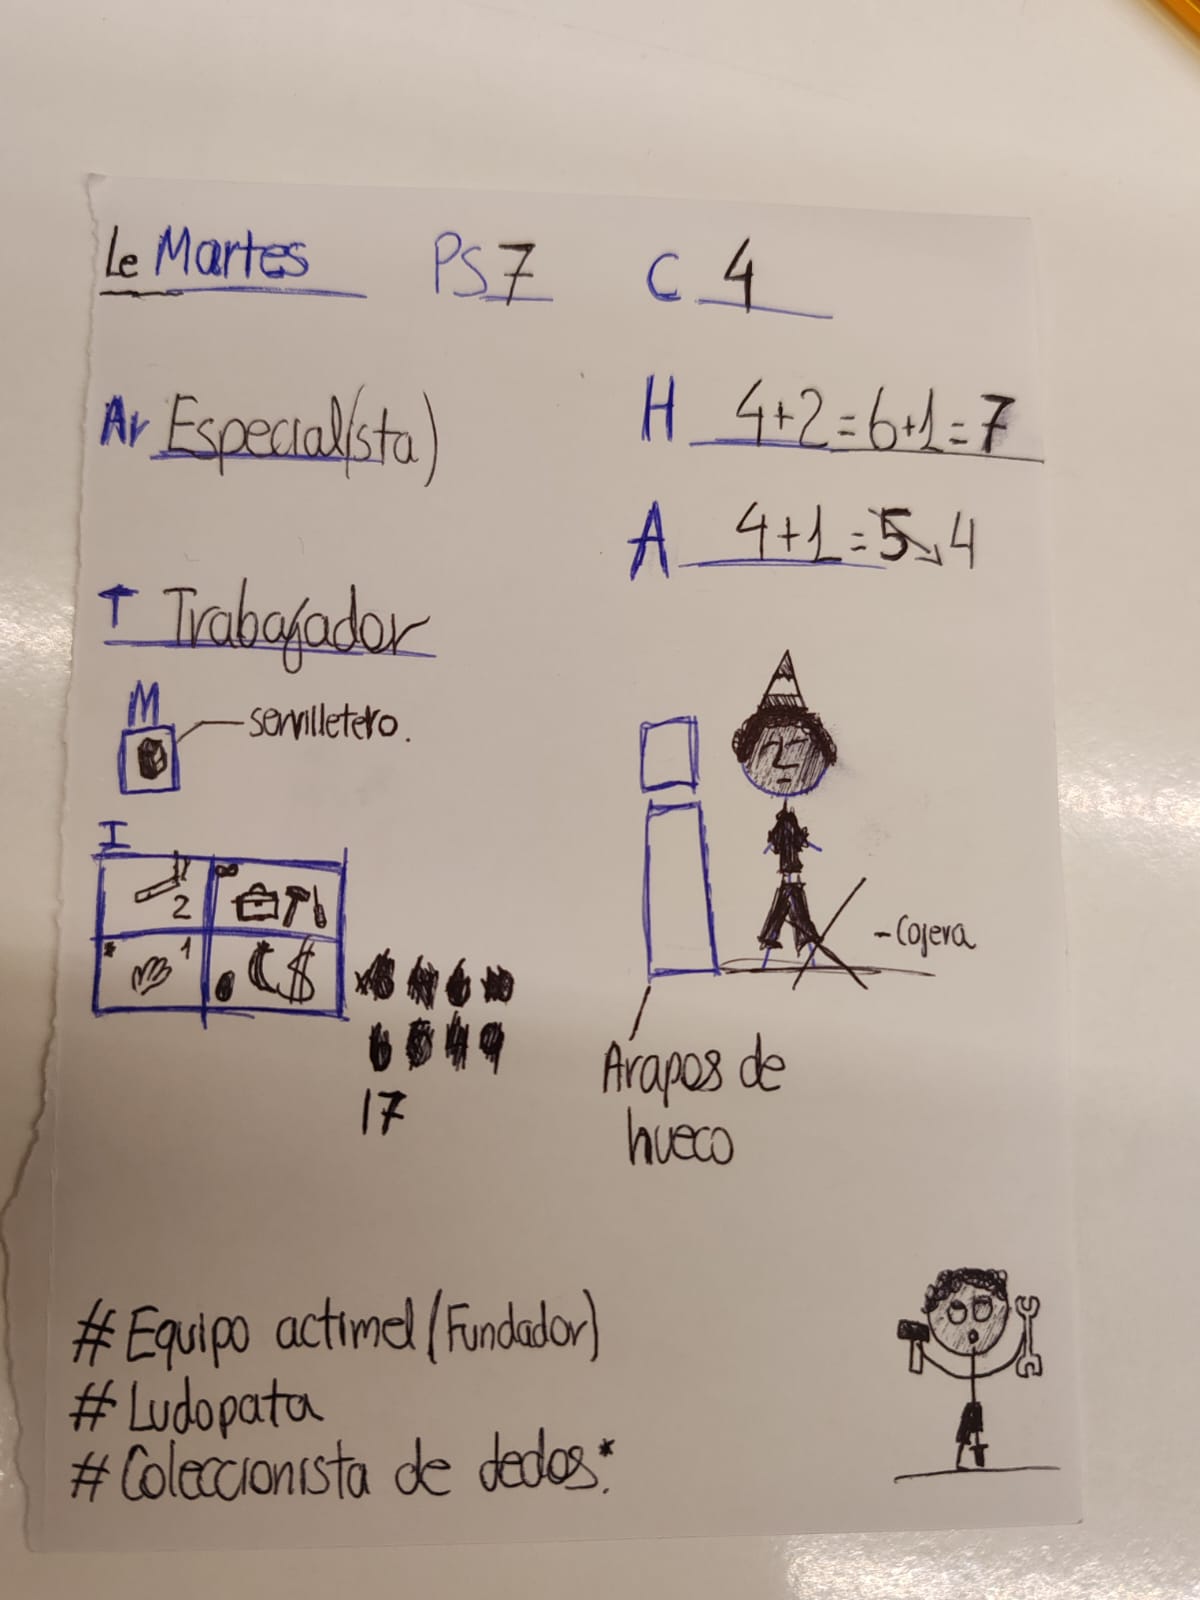 Le Martes PS 7 C 4
Ar Especial(ista)
H 4+2=6+1=7
A 4+1=5↘4
T Trabajador
M
servilletero.
I
2 ∞
* 1 $
17
-Cojera
Arapos de
hueco
# Equipo actimel (Fundador)
# Ludopata
# Coleccionista de dedos.*